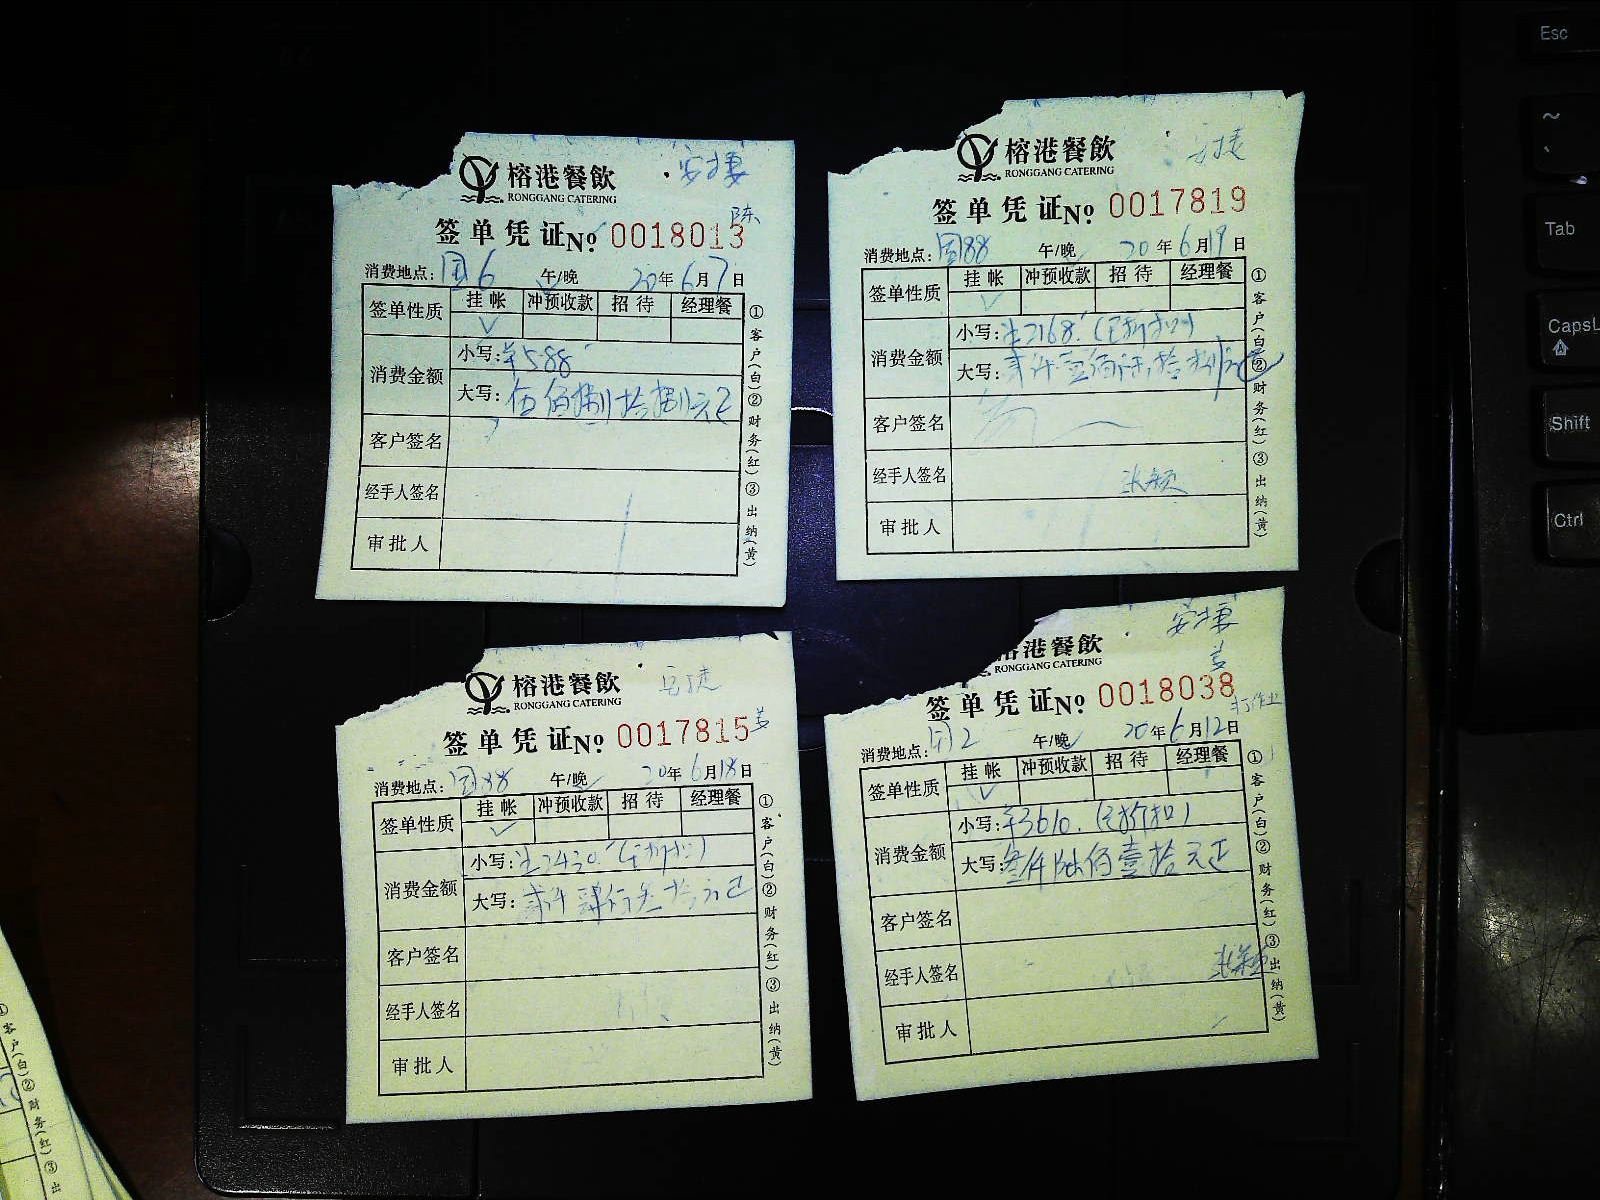 榕港餐飲
RONGGANG CATERING
安捷
陈
签单凭证No 0018013
消费地点: 团6 午/晚 20年6月7日
签单性质 挂帐 冲预收款 招待 经理餐
✓
消费金额
小写: ¥588
大写: 伍佰捌拾捌元正
客户签名
经手人签名
审批人
①客户(白)②财务(红)③出纳(黄)
榕港餐飲
RONGGANG CATERING
安捷
签单凭证No 0017819
消费地点: 团88 午/晚 20年6月19日
签单性质 挂帐 冲预收款 招待 经理餐
✓
消费金额
小写: ¥2168.
大写: 贰仟壹佰陆拾捌元
客户签名
经手人签名
审批人
①客户(白)②财务(红)③出纳(黄)
榕港餐飲
RONGGANG CATERING
安捷
签单凭证No 0017815
消费地点: 团88 午/晚 20年6月18日
签单性质 挂帐 冲预收款 招待 经理餐
✓
消费金额
小写: ¥2430.
大写: 贰仟肆佰叁拾元正
客户签名
经手人签名
审批人
①客户(白)②财务(红)③出纳(黄)
榕港餐飲
RONGGANG CATERING
安捷
签单凭证No 0018038
消费地点: 团2 午/晚 20年6月12日
签单性质 挂帐 冲预收款 招待 经理餐
✓
消费金额
小写: ¥3610.
大写: 叁仟陆佰壹拾元正
客户签名
经手人签名
审批人
①客户(白)②财务(红)③出纳(黄)
Esc
Tab
CapsL
Shift
Ctrl
①客户(白)②财务(红)③出